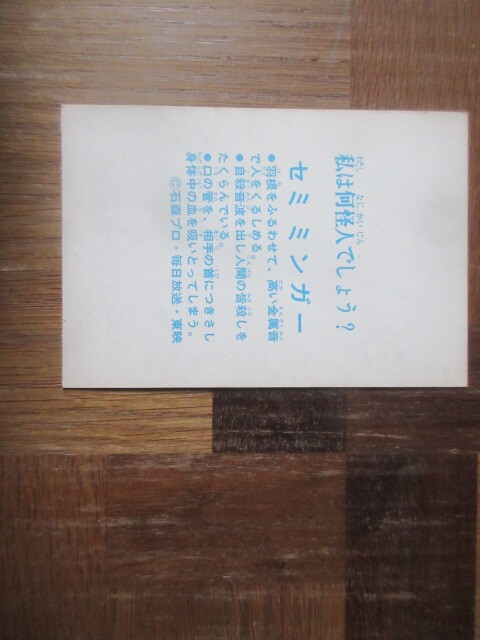 私は何怪人でしょう?
セミミンガー
●羽根をふるわせて、高い金属音
で人をくるしめる。
●自殺音波を出し人間の皆殺しを
たくらんでいる。
●口の管を、相手の首につきさし
身体中の血を吸いとってしまう。
©石森プロ・毎日放送・東映